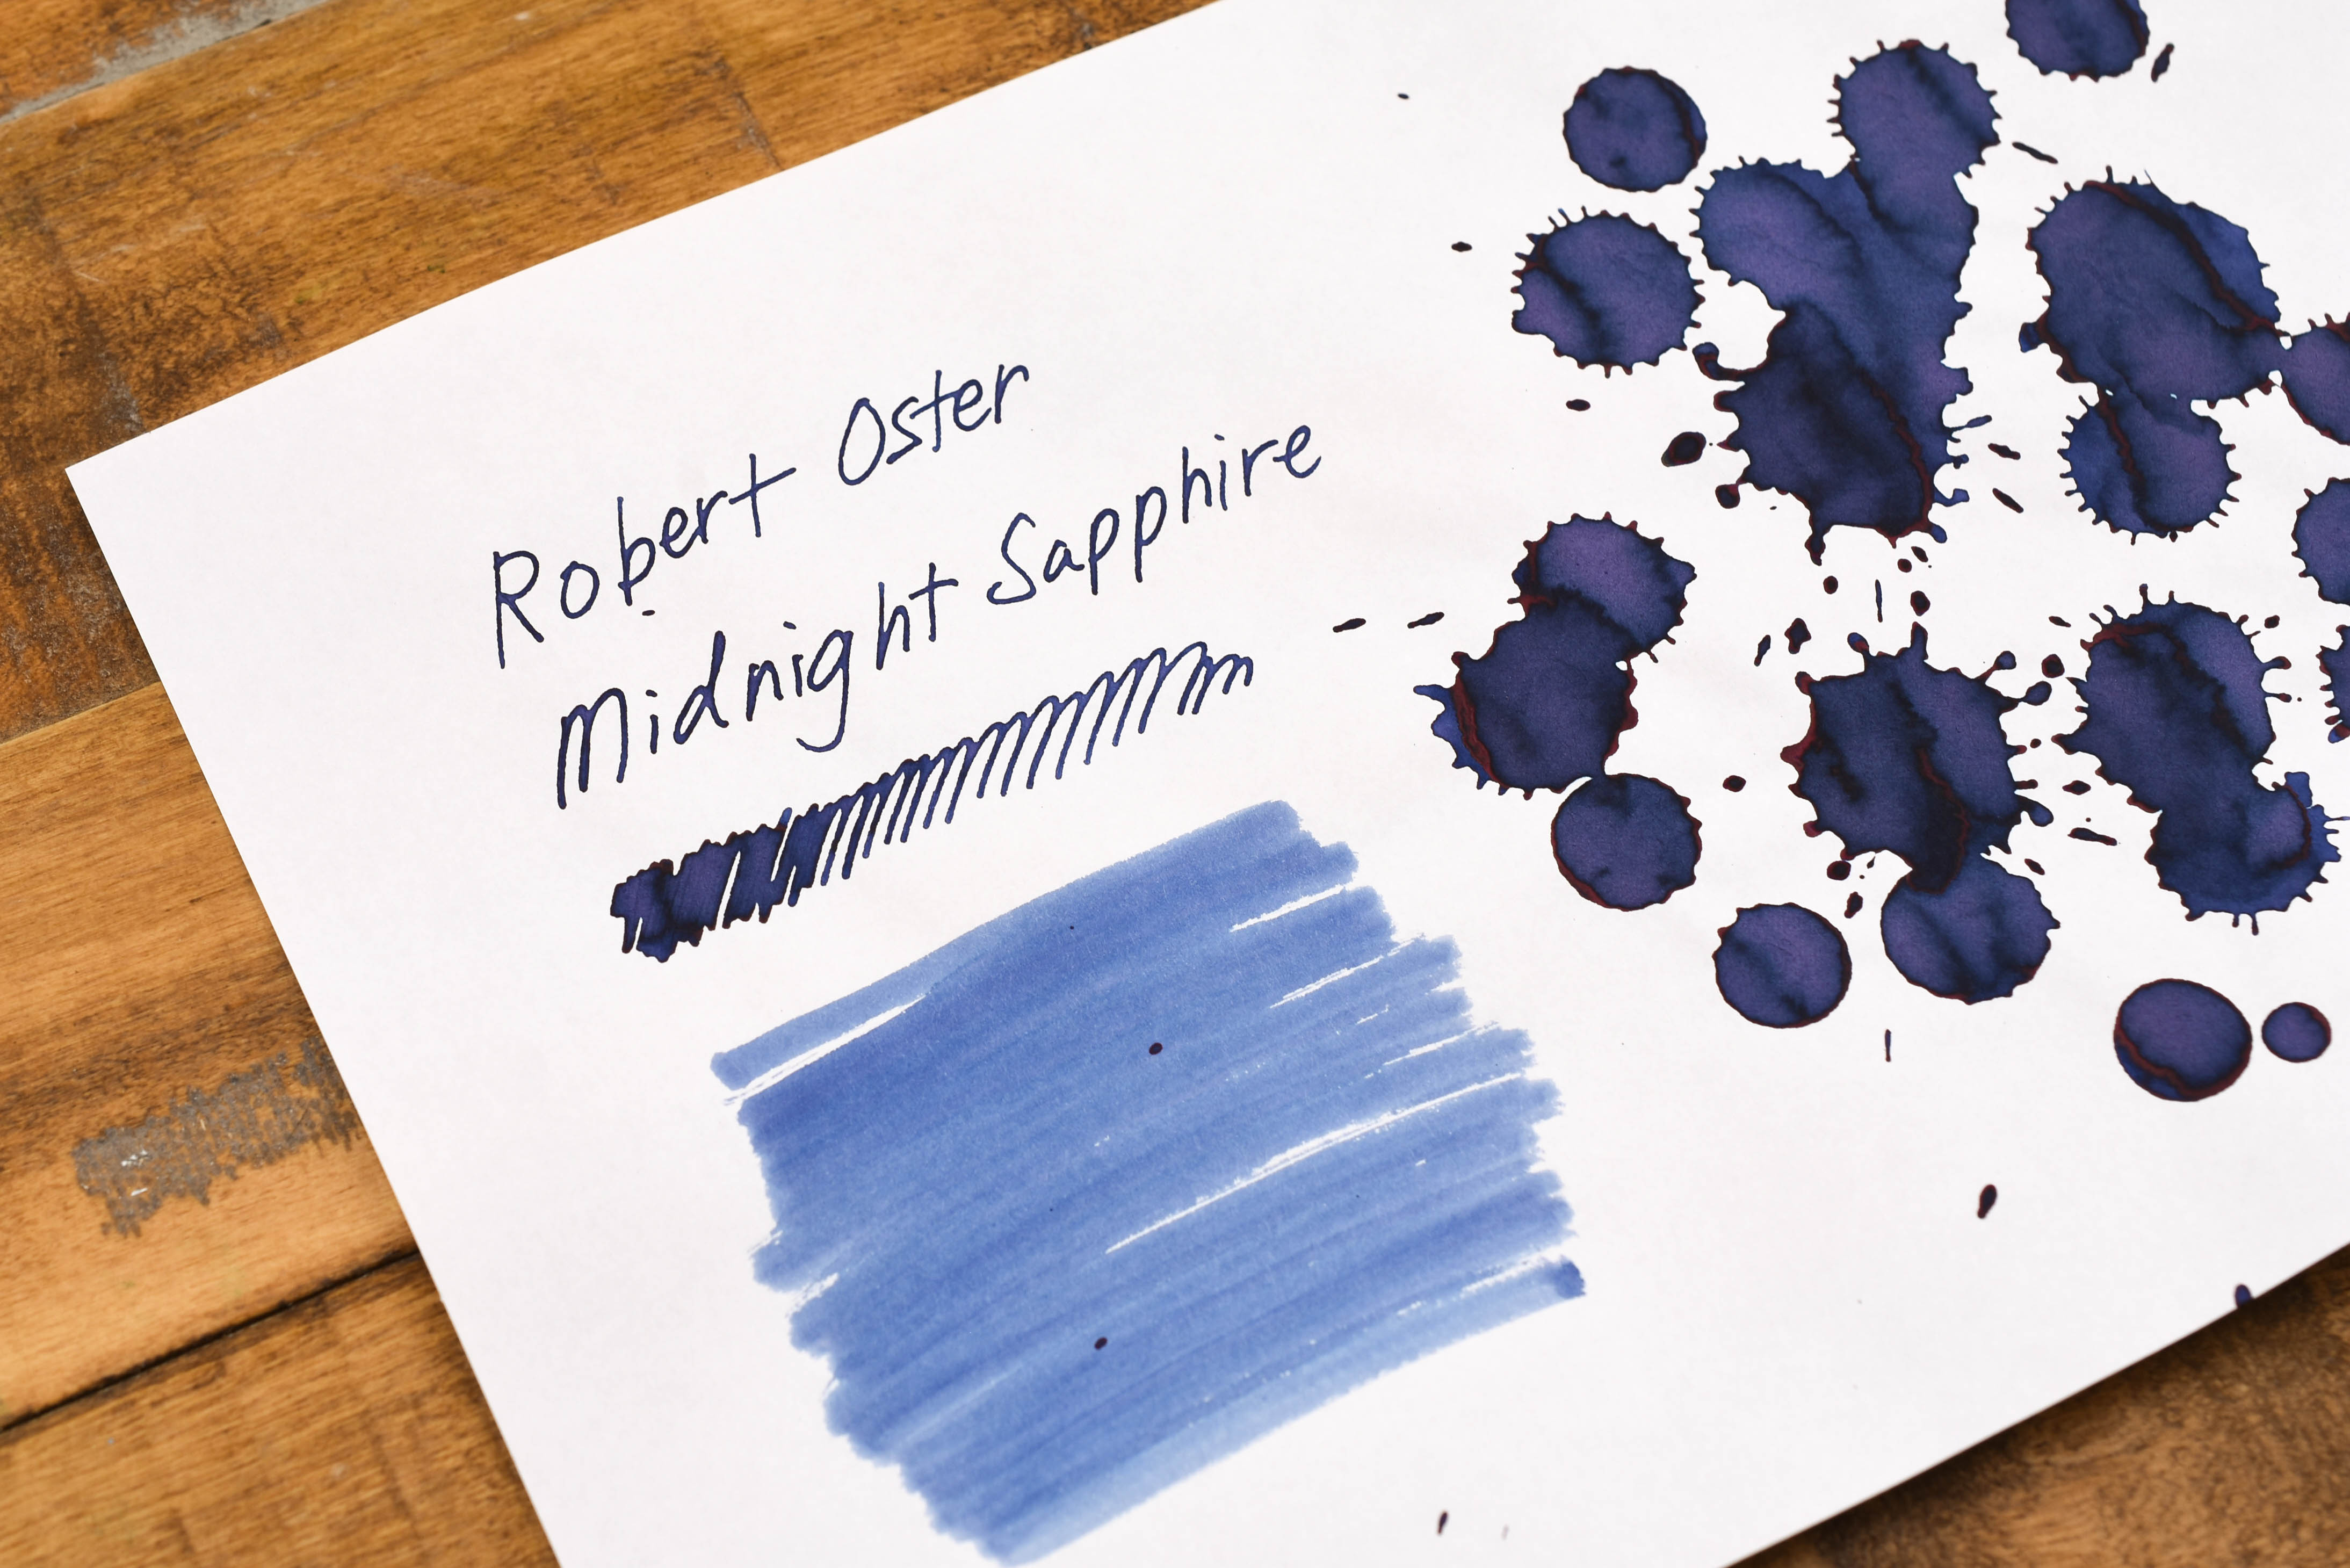 Robert Oster
Midnight Sapphire